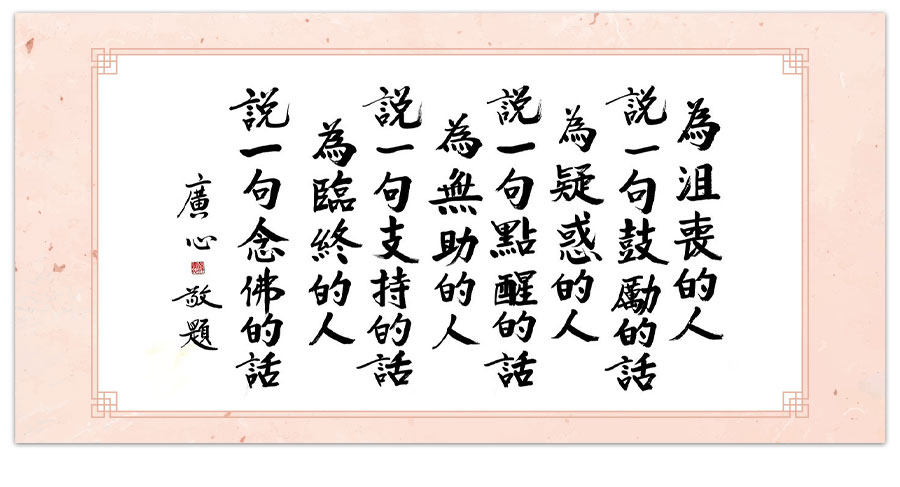 為沮喪的人
説一句鼓勵的話
為疑惑的人
説一句點醒的話
為無助的人
説一句支持的話
為臨終的人
説一句念佛的話
廣心 敬題